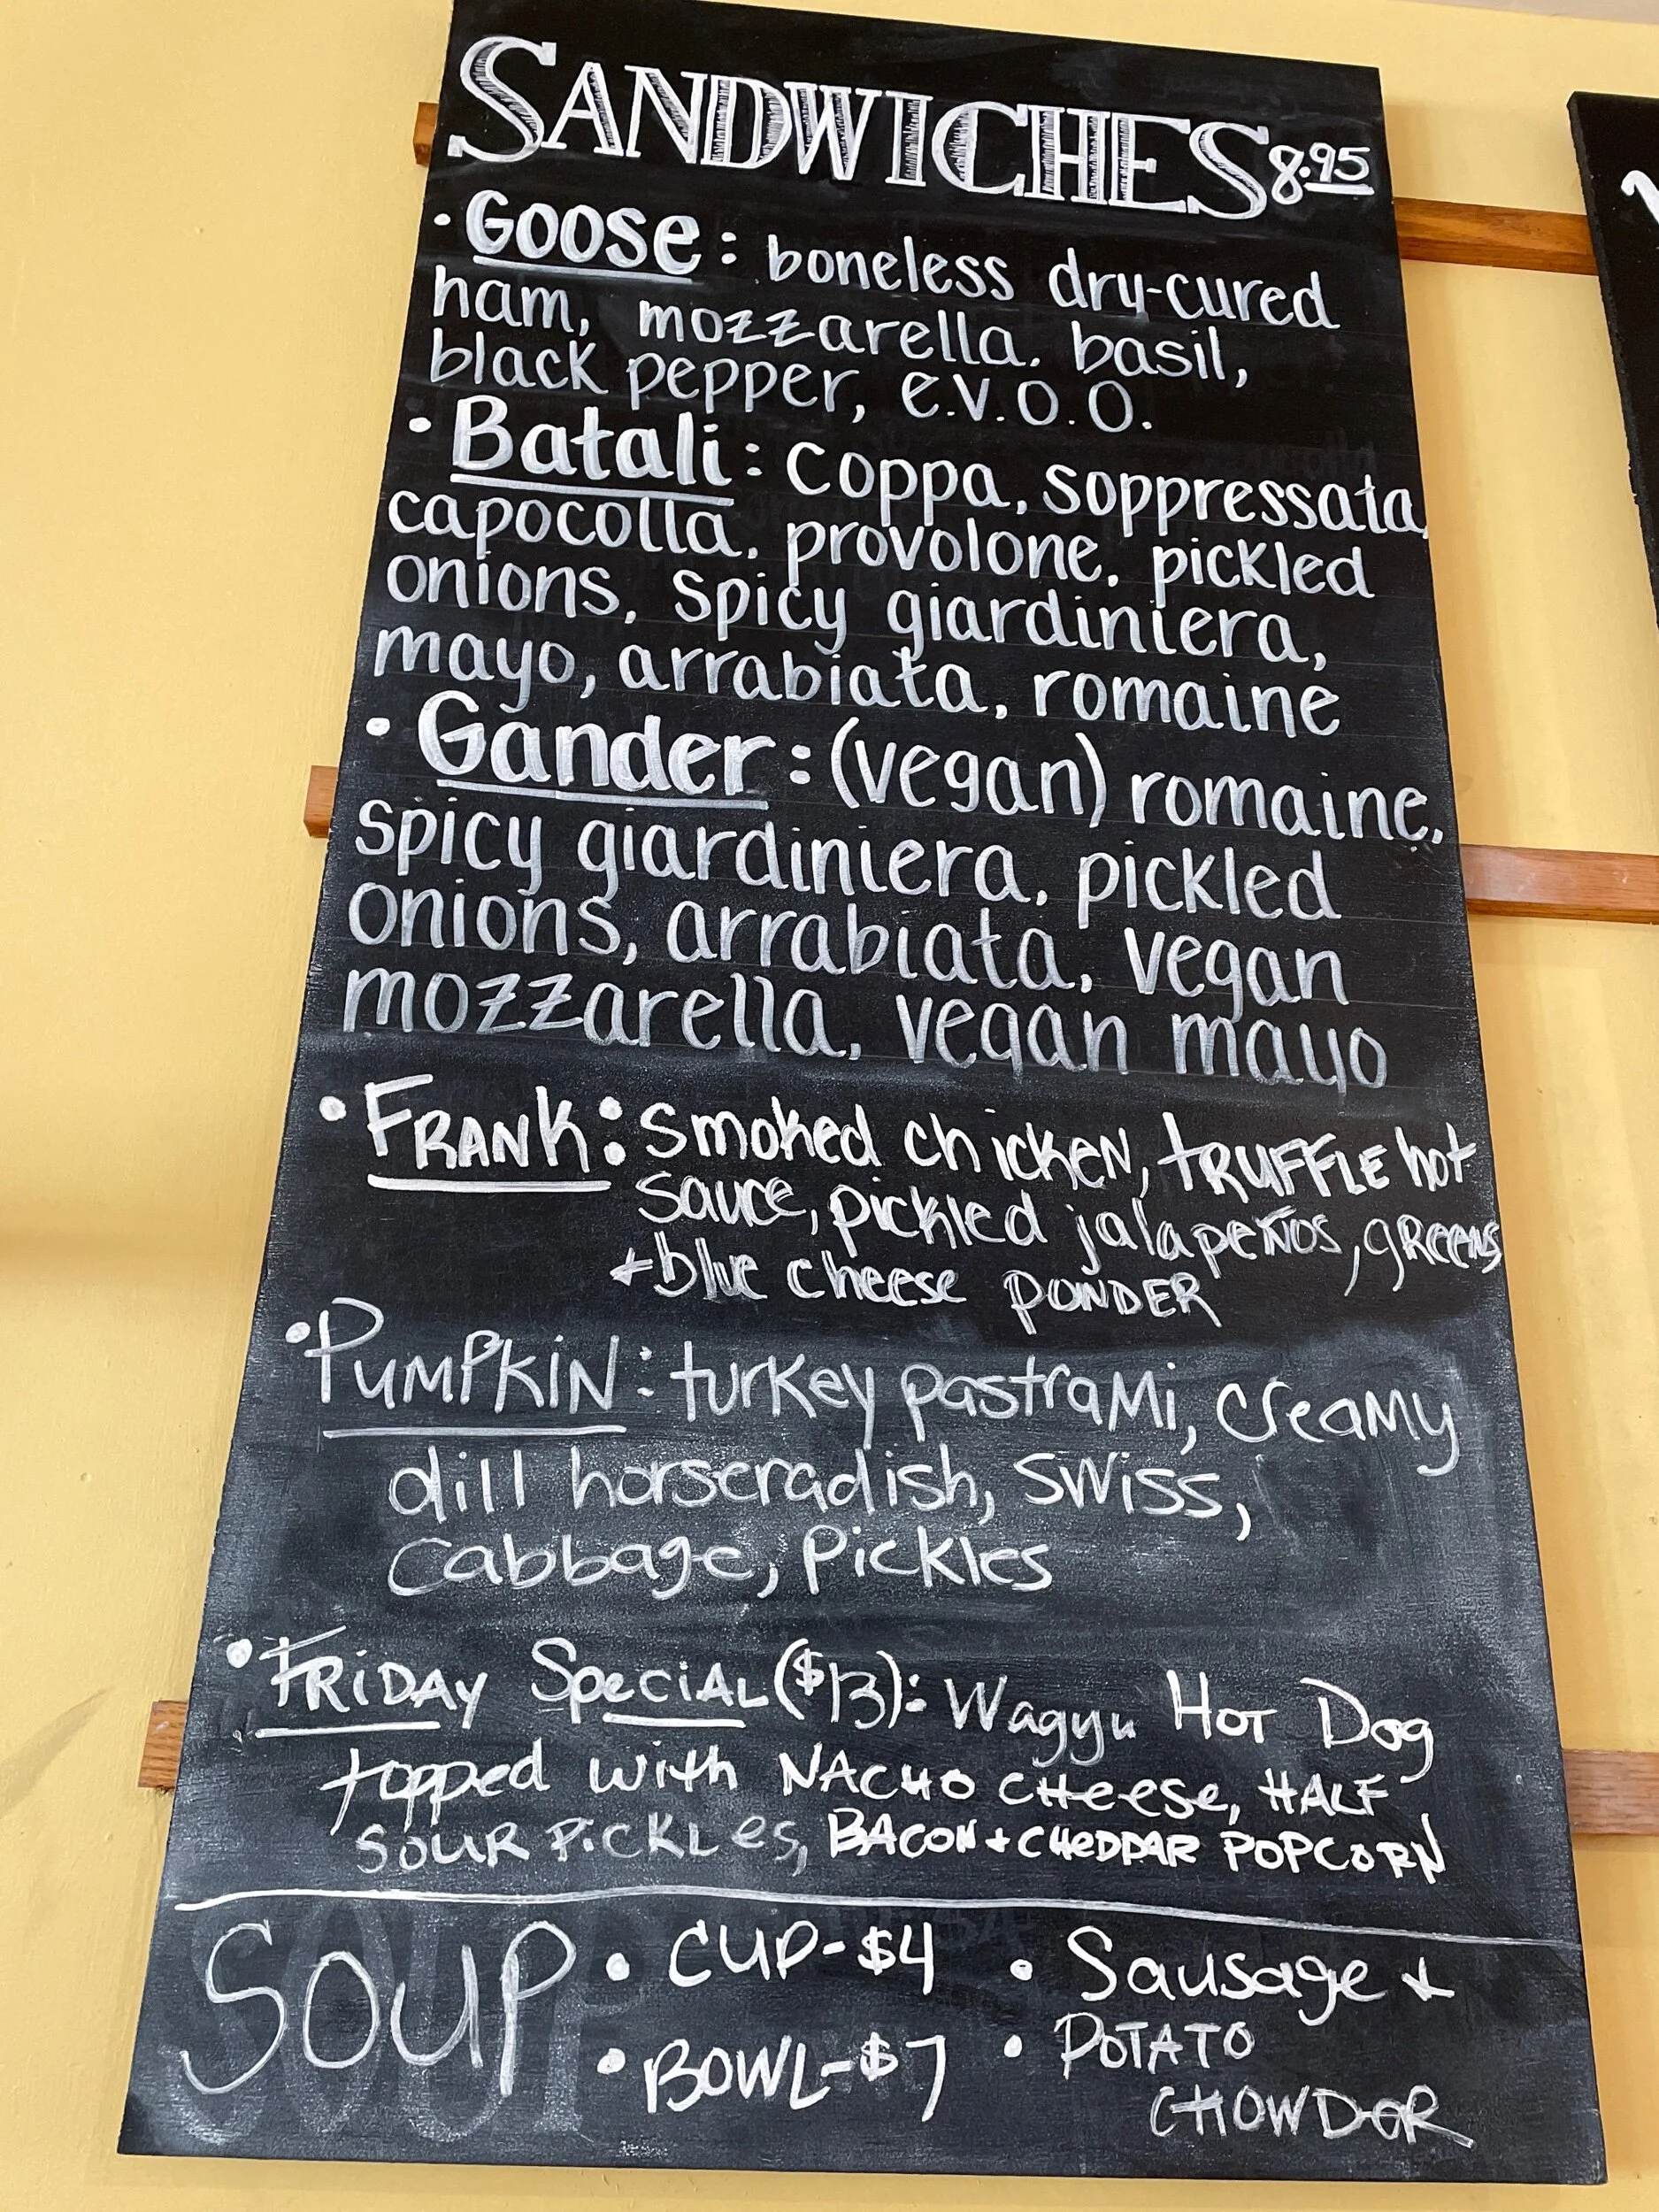 SANDWICHES 8.95
• Goose: boneless dry-cured
ham, mozzarella, basil,
black pepper, e.v.o.o.
• Batali: coppa, soppressata,
capocolla, provolone, pickled
onions, spicy giardiniera,
mayo, arrabiata, romaine
• Gander: (vegan) romaine,
spicy giardiniera, pickled
onions, arrabiata, vegan
mozzarella, vegan mayo
• FRANK: Smoked chicken, tRUFFLE hot
sauce, pickled jalapeños, gReens
+ blue cheese PONDER
• PUMPKIN: turkey pastraMi, creaMy
dill horseradish, swiss,
cabbage, pickles
• FRiDAy SpeciAL ($13): Wagyu Hot Dog
topped with NACHO CHeese, HALF
SOUR PiCKLes, BACON + CHeDDAR POPCORN
SOUP • CUP-$4 • Sausage +
• BOWL-$7 • POTATO
CHOWDOR